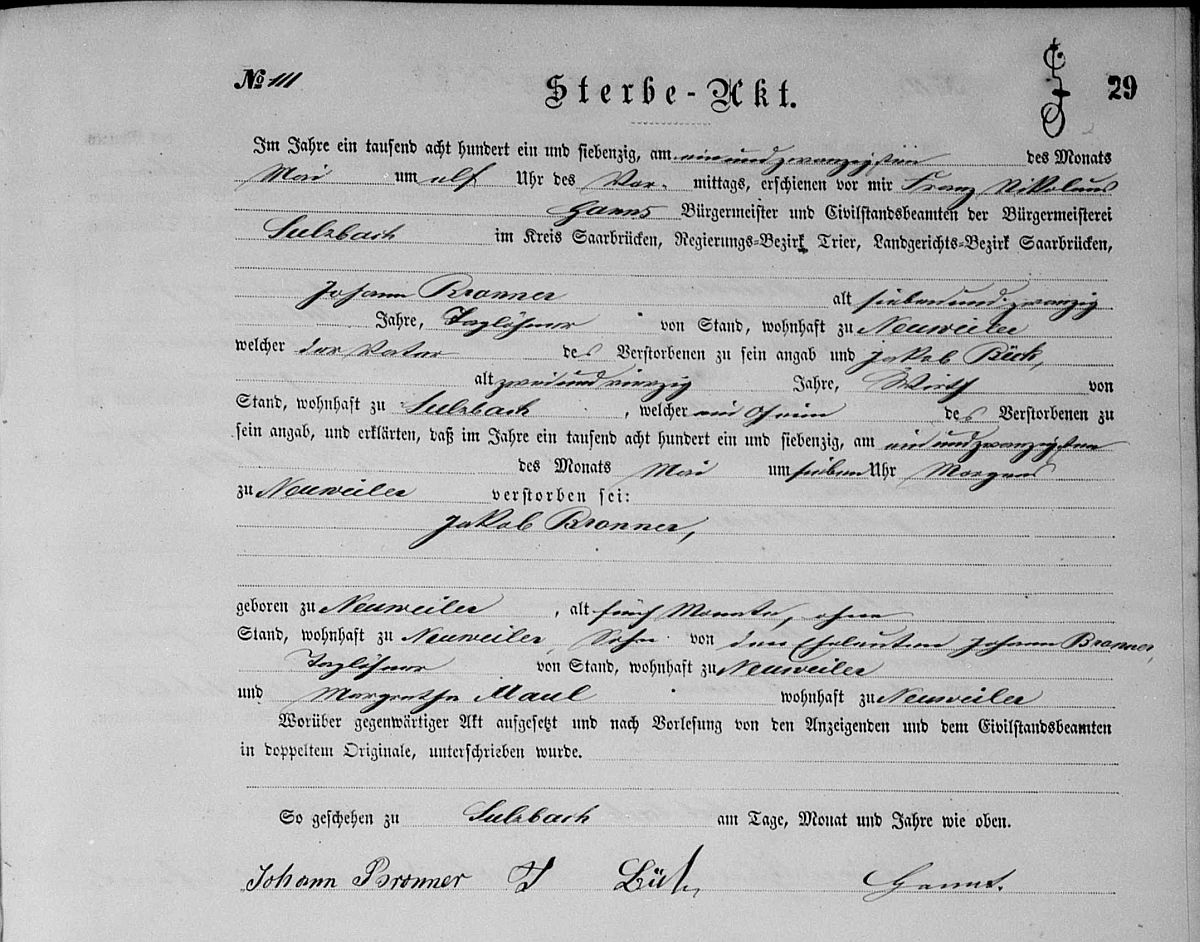 № 111 Sterbe-Akt. 29
Im Jahre ein tausend acht hundert ein und siebenzig, am ein und zwanzigsten des Monats
Mai um elf Uhr des Vor- mittags, erschienen vor mir Franz Nikolaus
Hanns Bürgermeister und Civilstandsbeamten der Bürgermeisterei
Sulzbach im Kreis Saarbrücken, Regierungs-Bezirk Trier, Landgerichts-Bezirk Saarbrücken,
Johann Bronner alt sieben und zwanzig
Jahre, Taglöhner von Stand, wohnhaft zu Neuweiler
welcher der Vater des Verstorbenen zu sein angab und Jakob Bück,
alt zwei und vierzig Jahre, Wirth von
Stand, wohnhaft zu Sulzbach, welcher ein Oheim des Verstorbenen zu
sein angab, und erklärten, daß im Jahre ein tausend acht hundert ein und siebenzig, am ein und zwanzigsten
des Monats Mai um sieben Uhr Morgens
zu Neuweiler verstorben sei:
Jakob Bronner,
geboren zu Neuweiler, alt fünf Monate, ohne
Stand, wohnhaft zu Neuweiler, Sohn von den Eheleuten Johann Bronner,
Taglöhner von Stand, wohnhaft zu Neuweiler
und Margretha Maul wohnhaft zu Neuweiler
Worüber gegenwärtiger Akt aufgesetzt und nach Vorlesung von den Anzeigenden und dem Civilstandsbeamten
in doppeltem Originale, unterschrieben wurde.
So geschehen zu Sulzbach am Tage, Monat und Jahre wie oben.
Johann Bronner J Bück